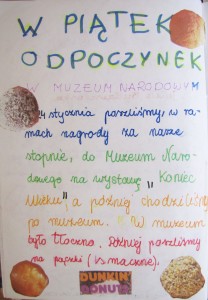 W PIĄTEK
ODPOCZYNEK
W MUZEUM NARODOWYM
4 stycznia poszliśmy, w ra-
mach nagrody za nasze
stopnie, do Muzeum Naro-
dowego na wystawę "Koniec
Wieku" a później chodziliśmy
po muzeum. W muzeum
było tłoczno. Później poszliśmy
na pączki (b. smaczne).
DUNKIN'
DONUTS